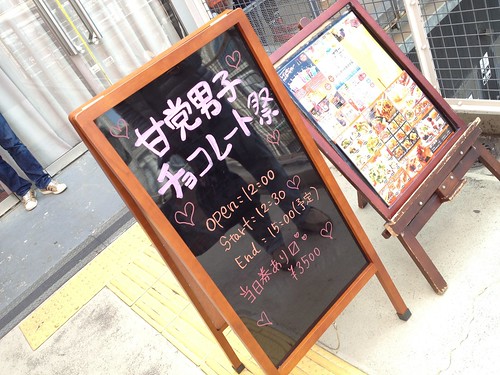 甘党男子
チョコレート祭
open=12:00
Start:12:30
End:15:00(予定)
当日券あり
¥3500